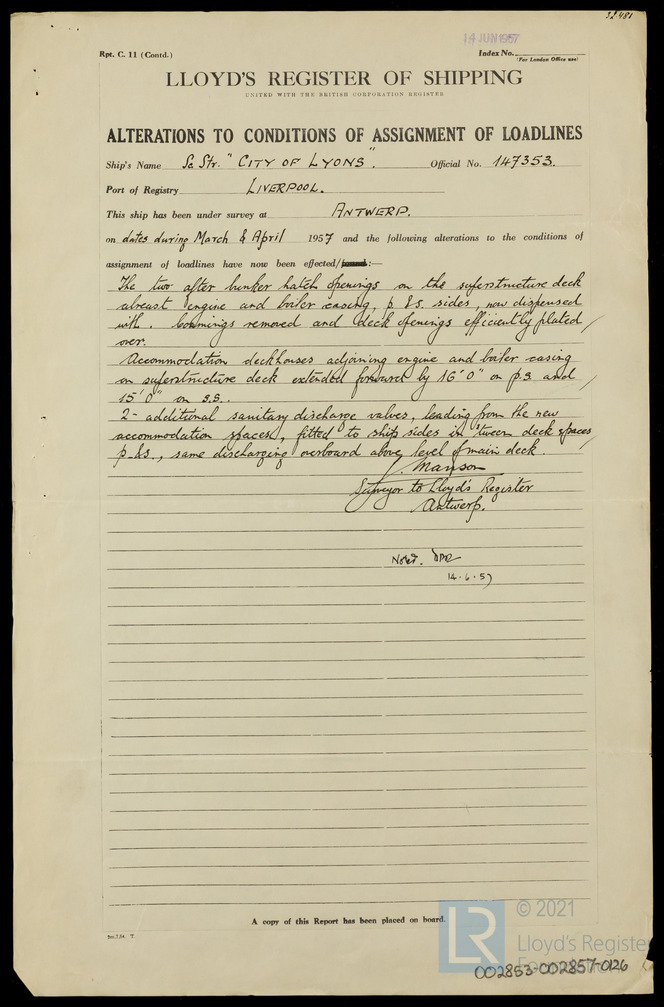 32481
14 JUN 1957
Rpt. C. 11 (Contd.)
Index No.
(For London Office use)
LLOYD'S REGISTER OF SHIPPING
UNITED WITH THE BRITISH CORPORATION REGISTER
ALTERATIONS TO CONDITIONS OF ASSIGNMENT OF LOADLINES
Ship's Name Sc Str. "CITY OF LYONS". Official No. 147353.
Port of Registry LIVERPOOL.
This ship has been under survey at ANTWERP.
on dates during March & April 1957 and the following alterations to the conditions of
assignment of loadlines have now been effected/:—
The two after bunker hatch openings on the superstructure deck
abreast engine and boiler casing, p. & s. sides, now dispensed
with. Coamings removed and deck openings efficiently plated
over.
Accommodation deckhouses adjoining engine and boiler casing
on superstructure deck extended forward by 16'0" on p.s. and
15'0" on s.s..
2- additional sanitary discharge valves, leading from the new
accommodation spaces, fitted to ship sides in 'tween deck spaces
p. & s., same discharging overboard above level of main deck.
J. Manson
Surveyor to Lloyd's Register
Antwerp.
Noted.
14.6.57
A copy of this Report has been placed on board.
LR
© 2021
Lloyd's Register
Foundation
002853-002857-0126